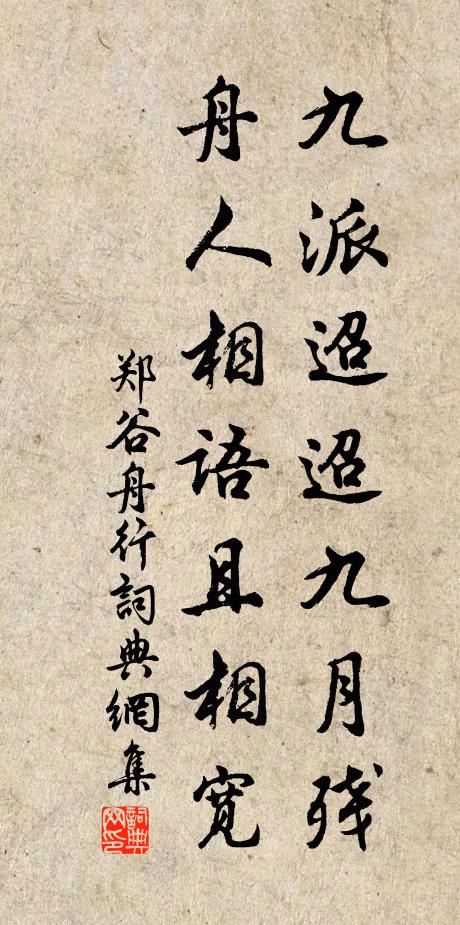 九派迢迢九月残
舟人相语且相宽
郑谷舟行詞典網集
詞典网印